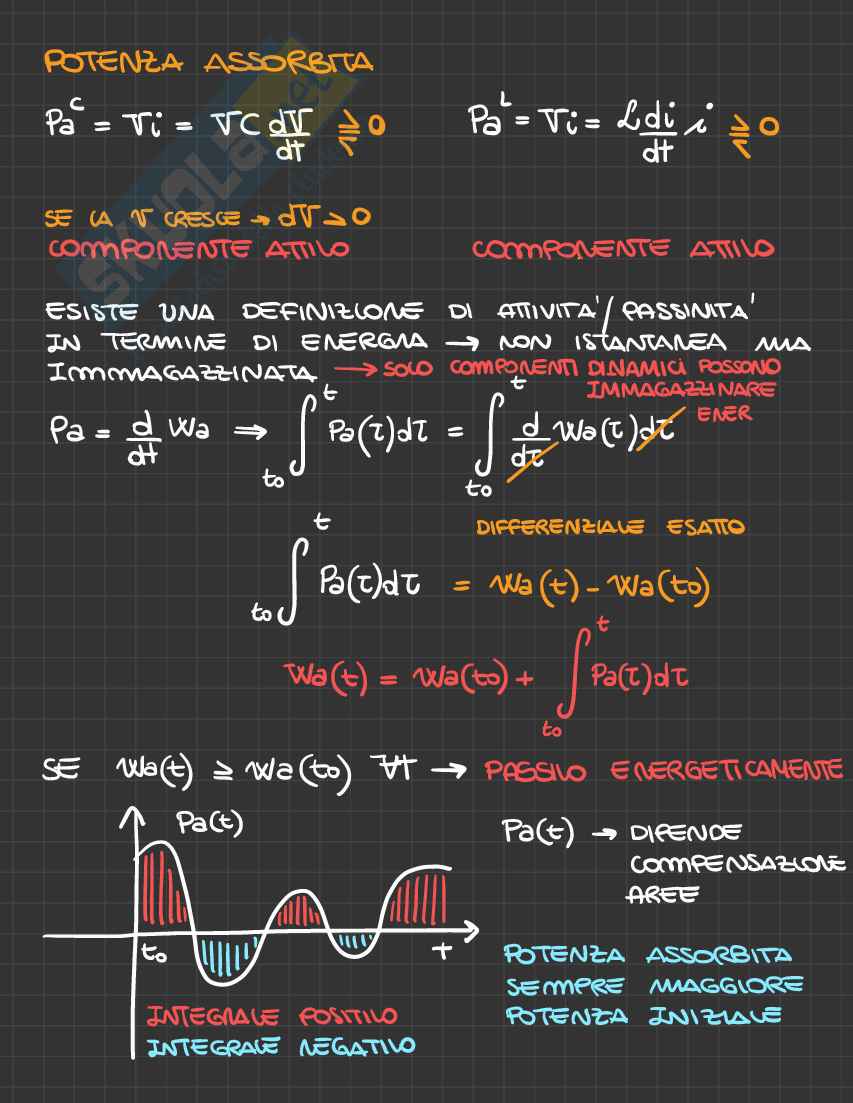 POTENZA ASSORBITA
Pa^C = Vi = VC dV/dt ≷ 0
Pa^L = Vi = L di/dt i ≷ 0
SE LA V CRESCE → dV > 0
COMPONENTE ATTIVO
COMPONENTE ATTIVO
ESISTE UNA DEFINIZIONE DI ATTIVITA'/PASSIVITA'
IN TERMINE DI ENERGIA → NON ISTANTANEA MA
IMMMAGAZZINATA → SOLO COMPONENTI DINAMICI POSSONO
IMMAGAZZINARE
ENER
Pa = d/dt Wa ⇒ ∫_{t0}^{t} Pa(τ)dτ = ∫_{t0}^{t} d/dτ Wa(τ)dτ
DIFFERENZIALE ESATTO
∫_{t0}^{t} Pa(τ)dτ = Wa(t) - Wa(t0)
Wa(t) = Wa(t0) + ∫_{t0}^{t} Pa(τ)dτ
SE Wa(t) ≥ Wa(t0) ∀t → PASSIVO ENERGETICAMENTE
Pa(t)
t0
t
Pa(t) → DIPENDE
COMPENSAZIONE
AREE
POTENZA ASSORBITA
SEMPRE MAGGIORE
POTENZA INIZIALE
INTEGRALE POSITIVO
INTEGRALE NEGATIVO
SKUOLA.net